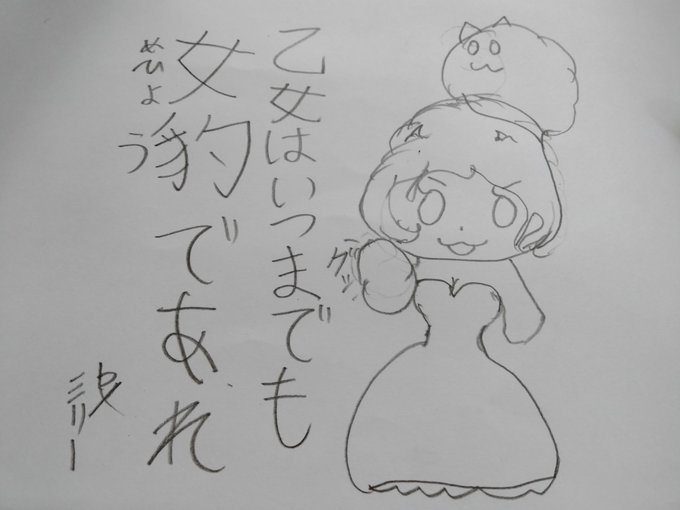 乙女はいつまでも
女豹であれ
めひょう
グッ
ミリー